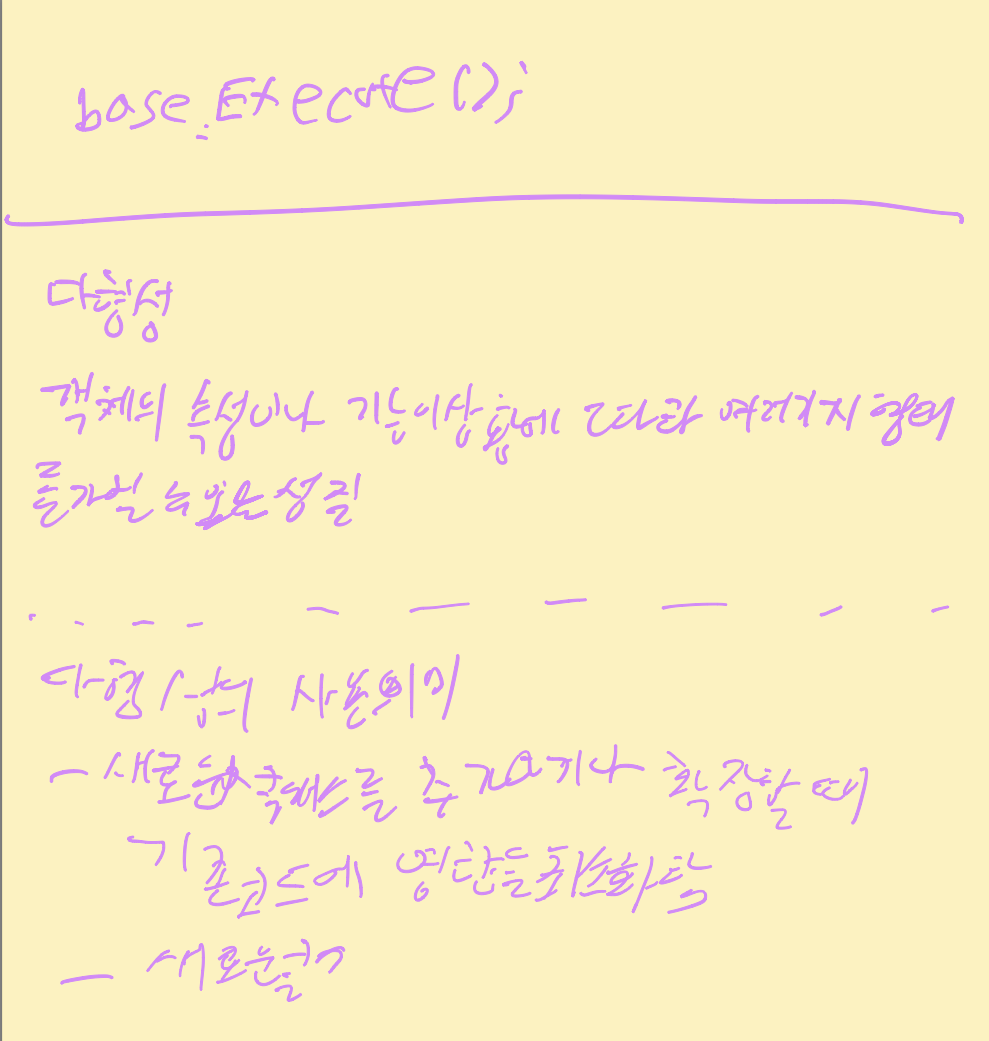 base.Execute();
다형성
객체의 속성이나 기능이 상황에 따라 여러가지 형태
를 가질 수 있는 성질
다형성의 사용의미
- 새로운 클래스를 추가하거나 확장할 때
기존코드에 영향을 최소화
- 새로운